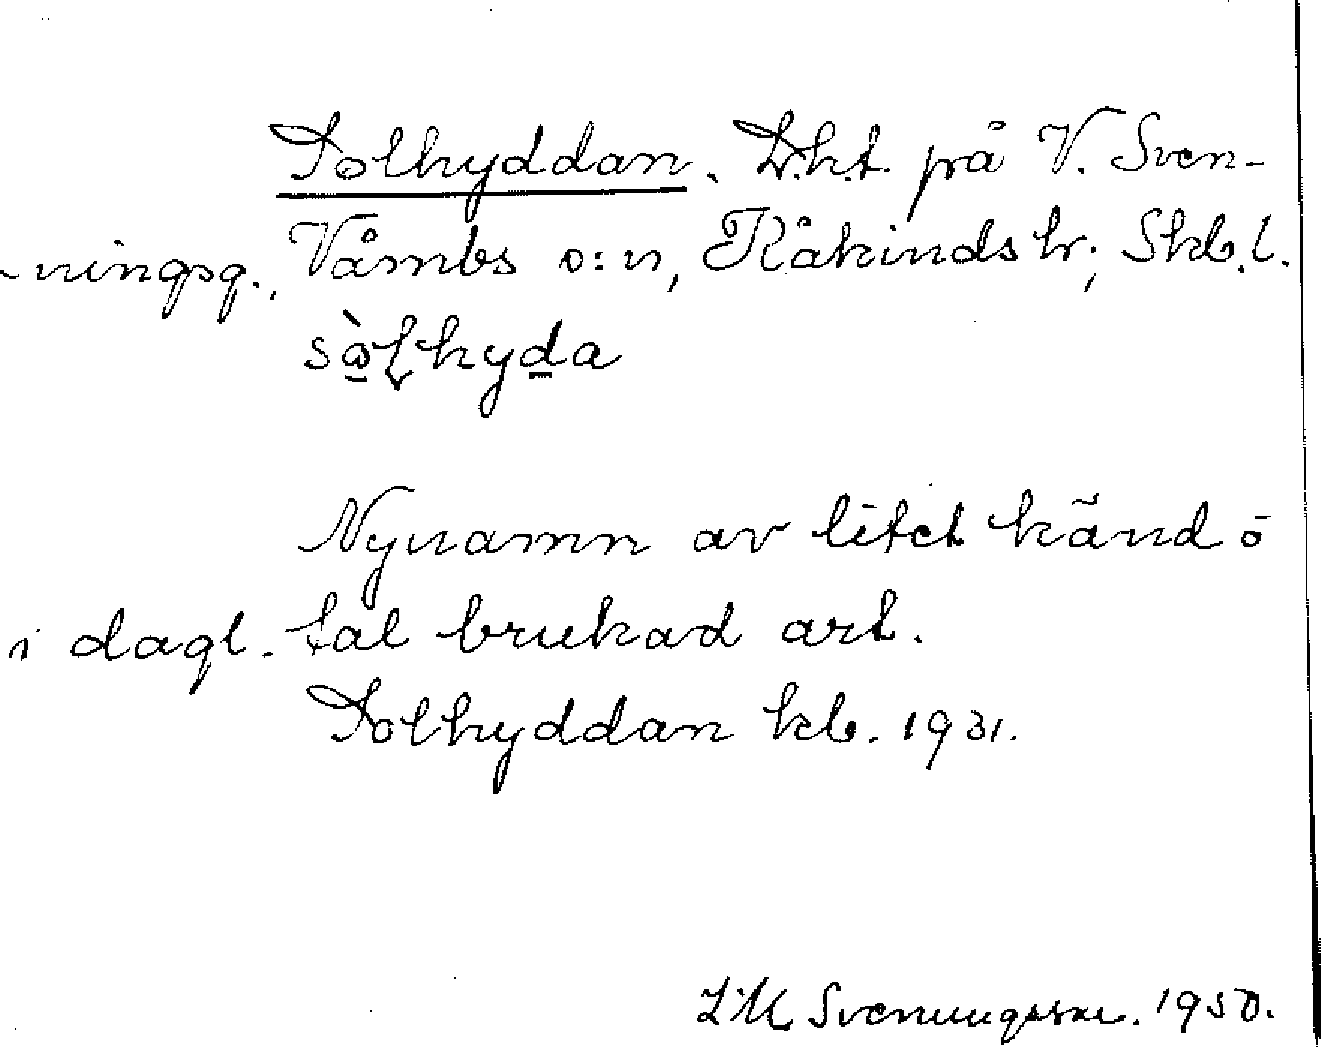 Solhyddan. Lht. på V. Sven-
ningsg., Våmbs s:n, Kåkinds hr; Skb.l.
sòlhyda
Nynamn av litet känd o
i dagl. tal brukad art.
Solhyddan kb. 1931.
L M Svenungsson. 1950.